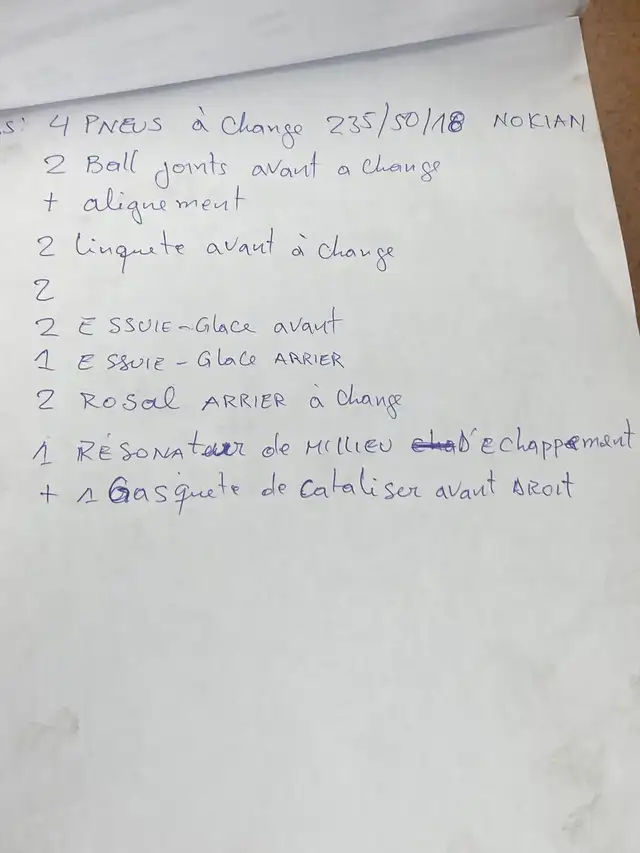 s: 4 PNEUS à change 235/50/18 NOKIAN
2 Ball joints avant a change
+ alignement
2 linquete avant à change
2
2 ESSUIE-Glace avant
1 ESSUIE-Glace ARRIER
2 ROSal ARRIER à change
1 RÉSONATeur de MILLIEU D'Echappement
+ 1 Gasquete de cataliser avant DROIT